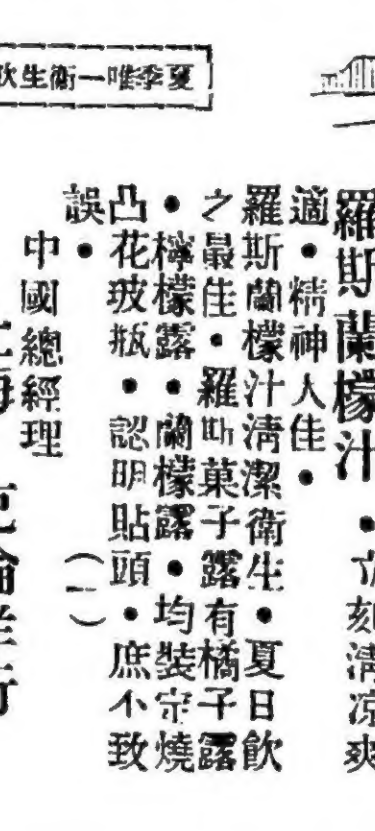 夏季唯一衛生
羅斯蘭檬汁・立刻清涼爽
適・精神人佳・
羅斯蘭檬汁清潔衛生・夏日飲
之最佳・羅斯菓子露有橘子露
・檸檬露・蘭檬露・均裝定燒
凸花玻瓶・認明貼頭・庶不致
誤・（一）
中國總經理